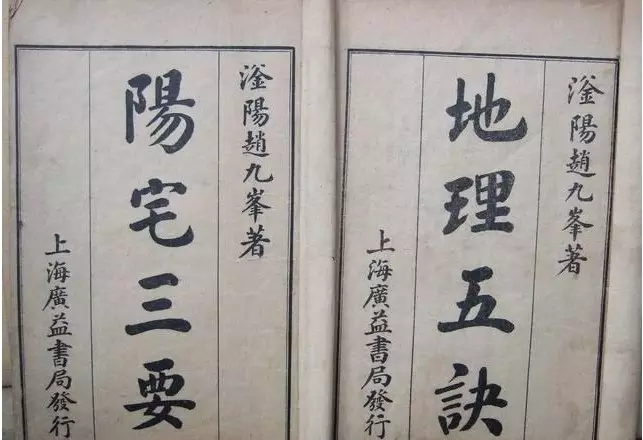 滏陽趙九峯著
地理五訣
上海廣益書局發行
滏陽趙九峯著
陽宅三要
上海廣益書局發行